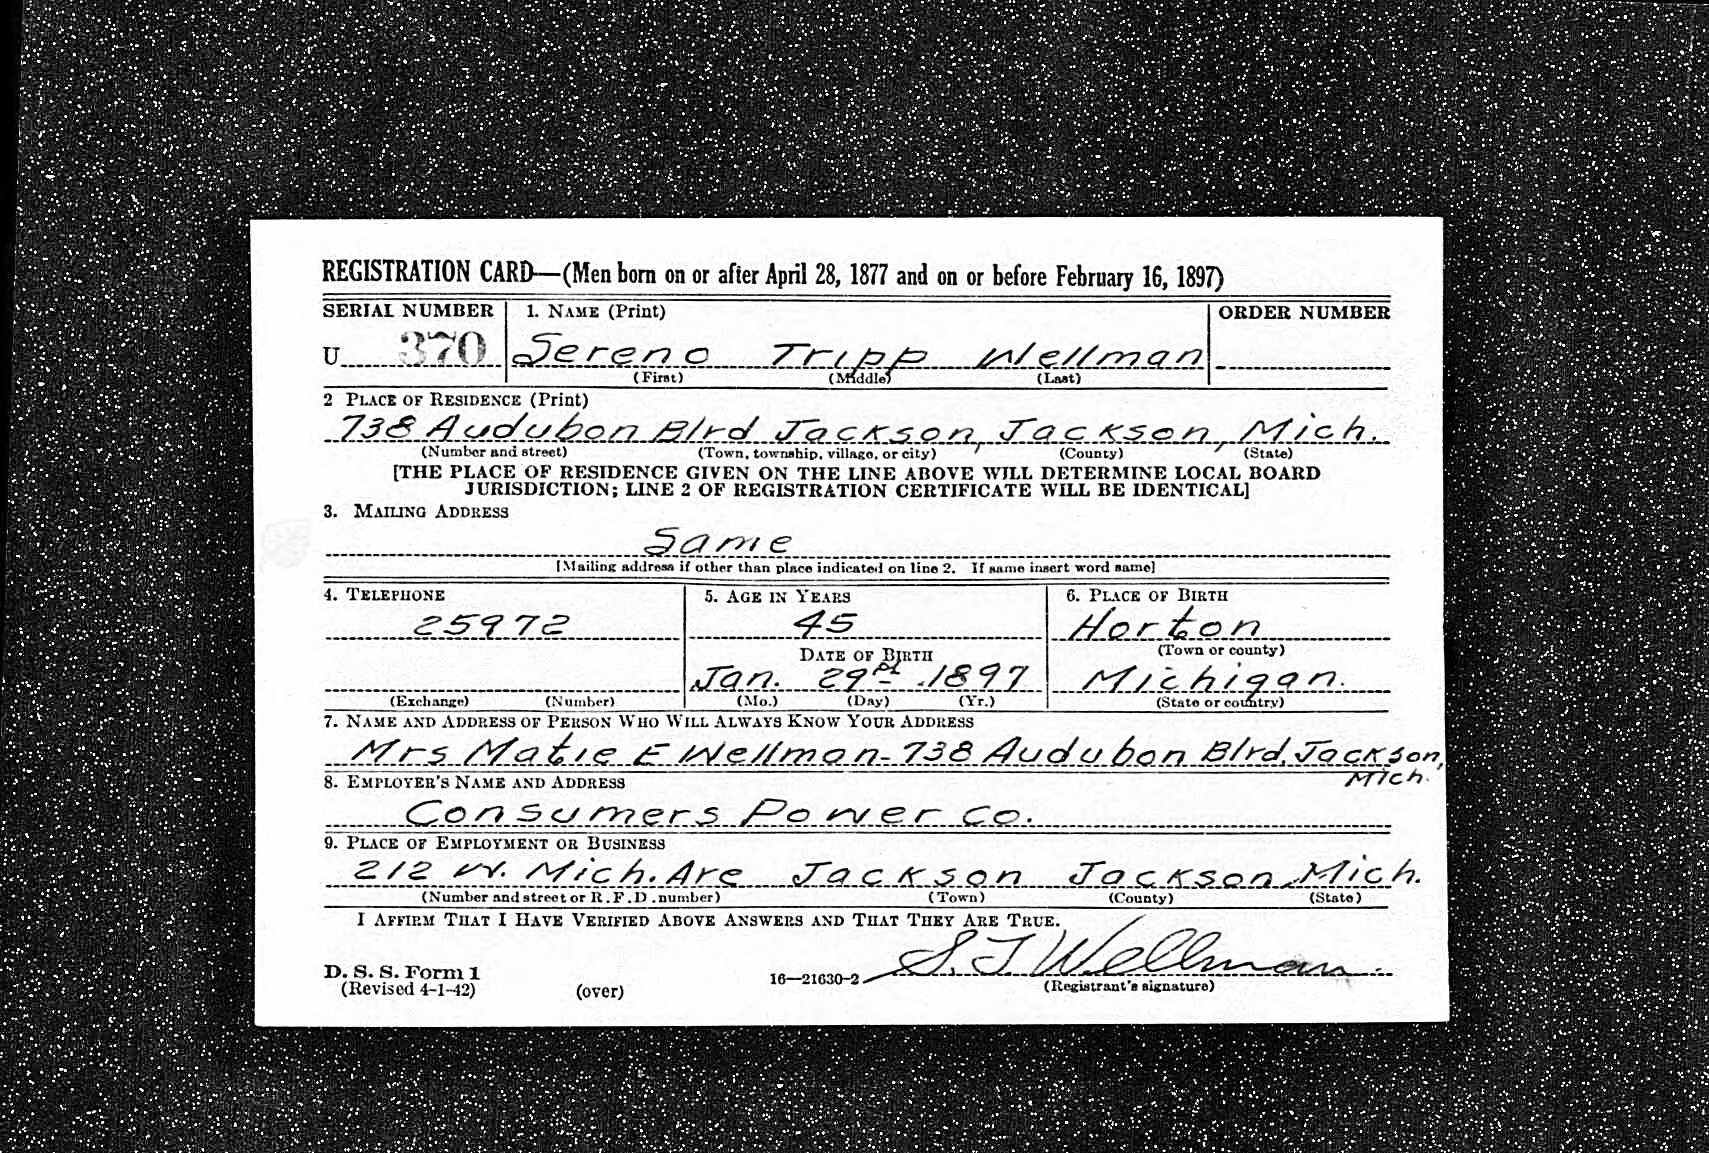 REGISTRATION CARD—(Men born on or after April 28, 1877 and on or before February 16, 1897)
SERIAL NUMBER 1. NAME (Print) ORDER NUMBER
U 370 Sereno Tripp Wellman
(First) (Middle) (Last)
2 PLACE OF RESIDENCE (Print)
738 Audubon Blvd Jackson, Jackson, Mich.
(Number and street) (Town, township, village, or city) (County) (State)
[THE PLACE OF RESIDENCE GIVEN ON THE LINE ABOVE WILL DETERMINE LOCAL BOARD
JURISDICTION; LINE 2 OF REGISTRATION CERTIFICATE WILL BE IDENTICAL]
3. MAILING ADDRESS
Same
[Mailing address if other than place indicated on line 2. If same insert word same]
4. TELEPHONE 5. AGE IN YEARS 6. PLACE OF BIRTH
25972 45 Horton
DATE OF BIRTH (Town or county)
Jan. 29 1897 Michigan.
(Exchange) (Number) (Mo.) (Day) (Yr.) (State or country)
7. NAME AND ADDRESS OF PERSON WHO WILL ALWAYS KNOW YOUR ADDRESS
Mrs Matie E Wellman - 738 Audubon Blvd. Jackson,
Mich.
8. EMPLOYER'S NAME AND ADDRESS
Consumers Power Co.
9. PLACE OF EMPLOYMENT OR BUSINESS
212 W. Mich. Ave Jackson Jackson Mich.
(Number and street or R.F.D. number) (Town) (County) (State)
I AFFIRM THAT I HAVE VERIFIED ABOVE ANSWERS AND THAT THEY ARE TRUE.
S. T Wellman.
D. S. S. Form 1
(Revised 4-1-42) (over) 16—21630-2 (Registrant's signature)